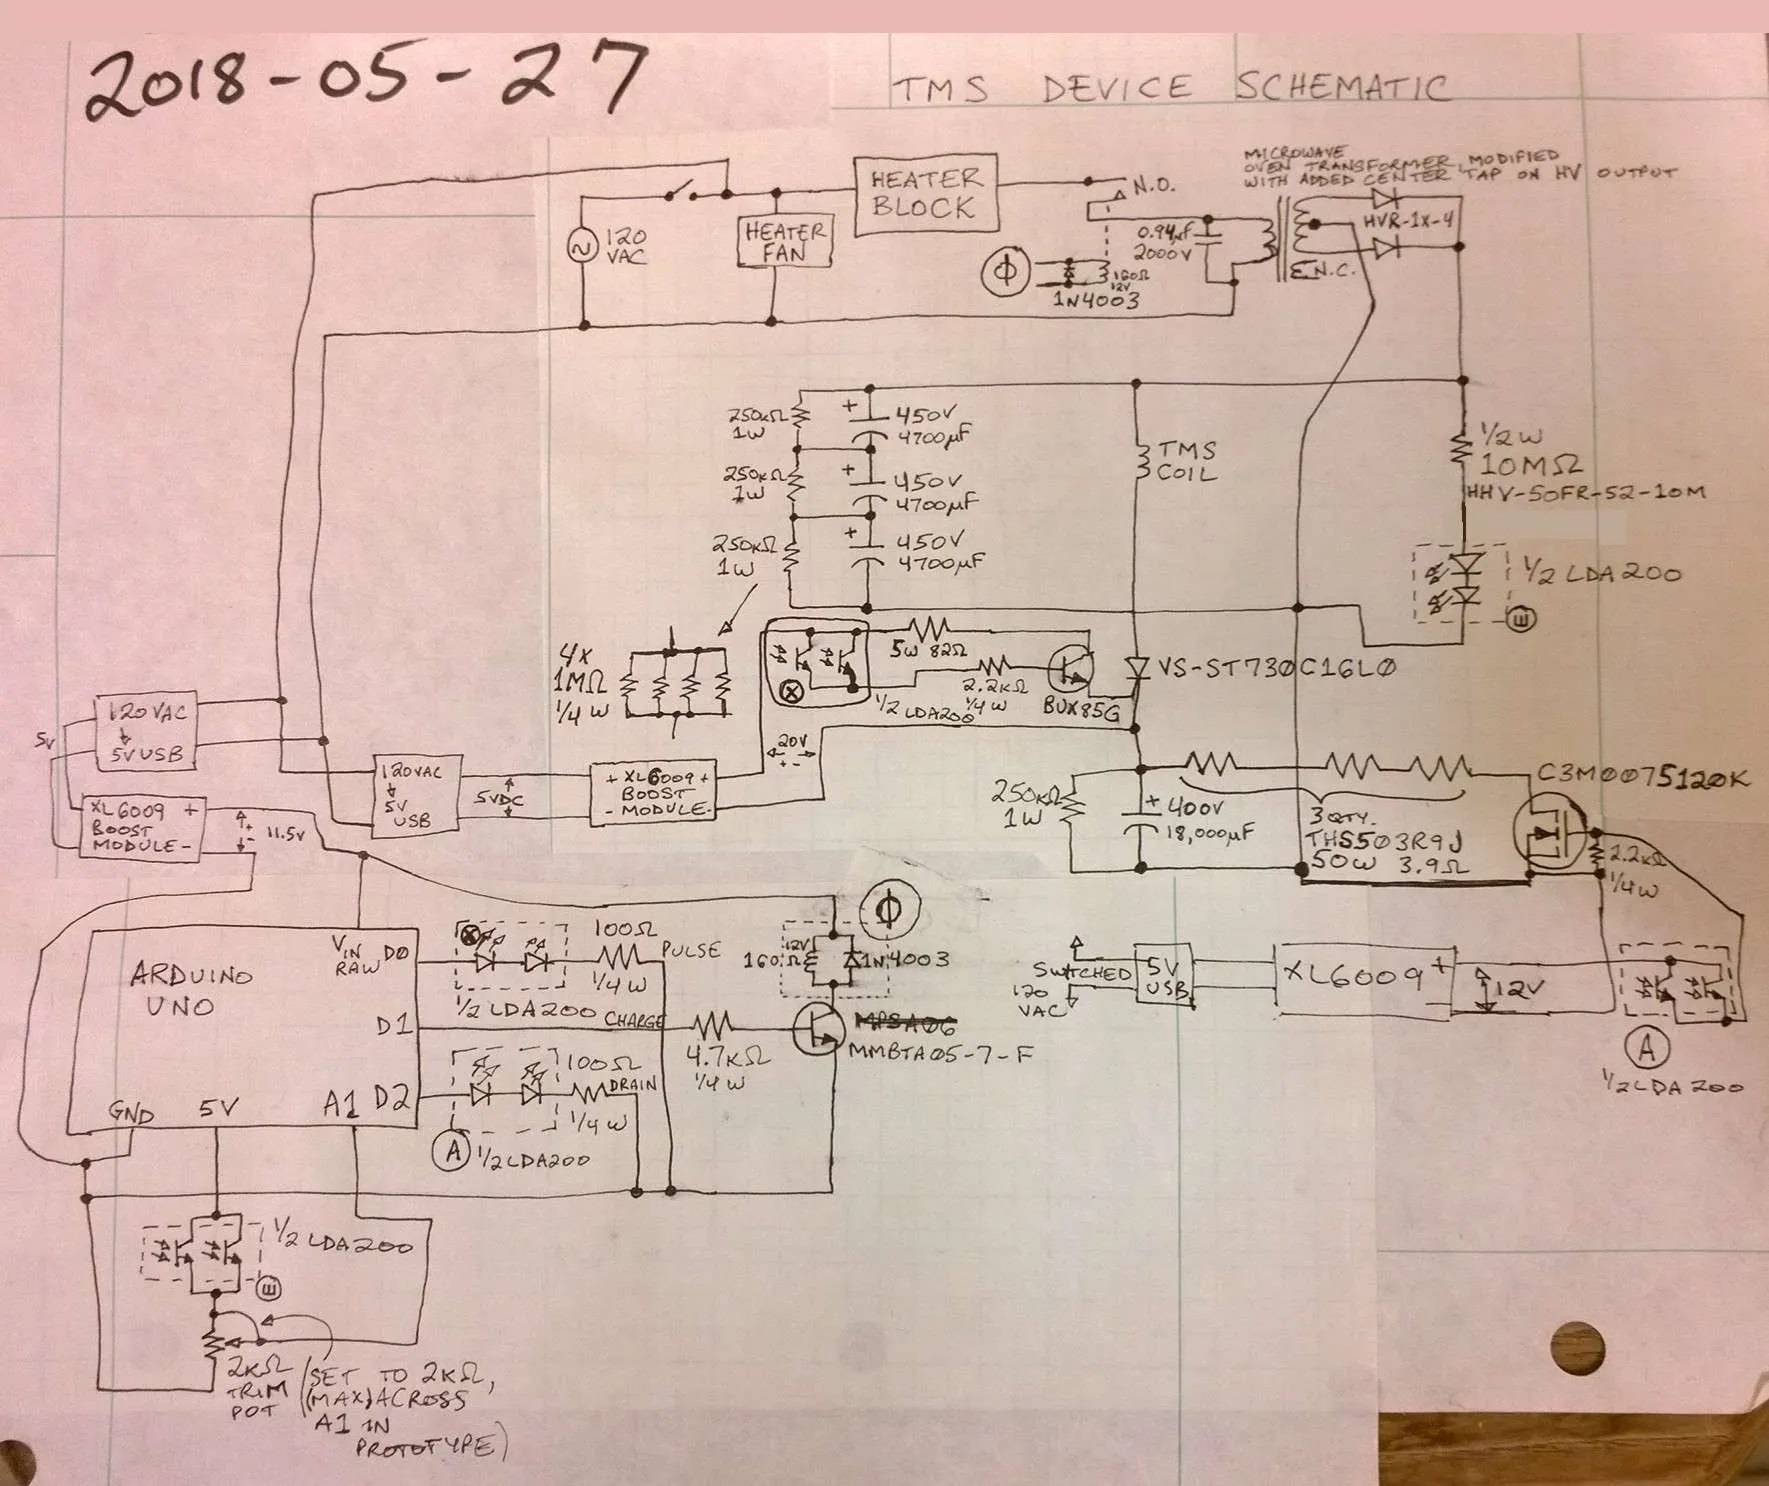 2018-05-27
TMS DEVICE SCHEMATIC
MICROWAVE
OVEN TRANSFORMER, MODIFIED
WITH ADDED CENTER TAP ON HV OUTPUT
120
VAC
HEATER
FAN
HEATER
BLOCK
N.O.
0.94µF
2000V
HVR-1X-4
N.C.
Φ
160Ω
12V
1N4003
250kΩ
1W
+
450V
4700µF
250kΩ
1W
+
450V
4700µF
250kΩ
1W
+
450V
4700µF
TMS
COIL
1/2W
10MΩ
HHV-50FR-52-10M
1/2 LDA200
E
4X
1MΩ
1/4W
X
5W 82Ω
2.2kΩ
1/4W
1/2 LDA200
BUX85G
VS-ST730C16L0
120VAC
↓
5V USB
5V
XL6009 +
BOOST
MODULE -
+
-
11.5V
120VAC
↓
5V
USB
5VDC
+ XL6009 +
BOOST
- MODULE -
20V
- +
250kΩ
1W
+
400V
18,000µF
3 QTY.
THS503R9J
50W 3.9Ω
C3M0075120K
2.2kΩ
1/4W
ARDUINO
UNO
VIN
RAW
D0
D1
D2
GND
5V
A1
X
1/2 LDA200
100Ω
1/4W
PULSE
CHARGE
4.7kΩ
1/4W
100Ω
1/4W
DRAIN
A
1/2 LDA200
Φ
12V
160Ω
1N4003
MPSA06
MMBTA05-7-F
SWITCHED
120
VAC
5V
USB
XL6009 +
-
12V
A
1/2 LDA200
1/2 LDA200
E
2kΩ
TRIM
POT
(SET TO 2kΩ,
(MAX) ACROSS
A1 IN
PROTOTYPE)